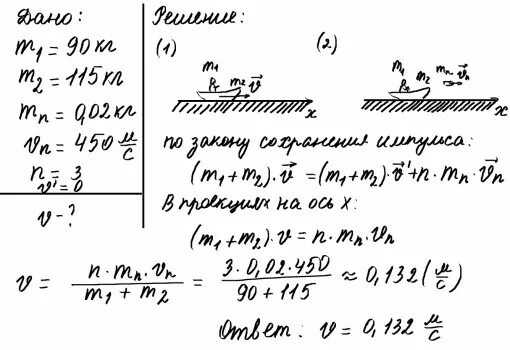 Дано:
m₁ = 90 кг
m₂ = 115 кг
mₙ = 0,02 кг
vₙ = 450 м/с
n = 3
v' = 0
v - ?
Решение:
(1)
(2)
m₁
m₂ v⃗
x
m₁
m₂
mₙ v⃗ₙ
x
по закону сохранения импульса:
(m₁ + m₂) · v⃗ = (m₁ + m₂) · v⃗' + n · mₙ · v⃗ₙ
В проекциях на ось x:
(m₁ + m₂) · v = n · mₙ · vₙ
v = (n · mₙ · vₙ)/(m₁ + m₂) = (3 · 0,02 · 450)/(90 + 115) ≈ 0,132 (м/с)
Ответ: v = 0,132 м/с